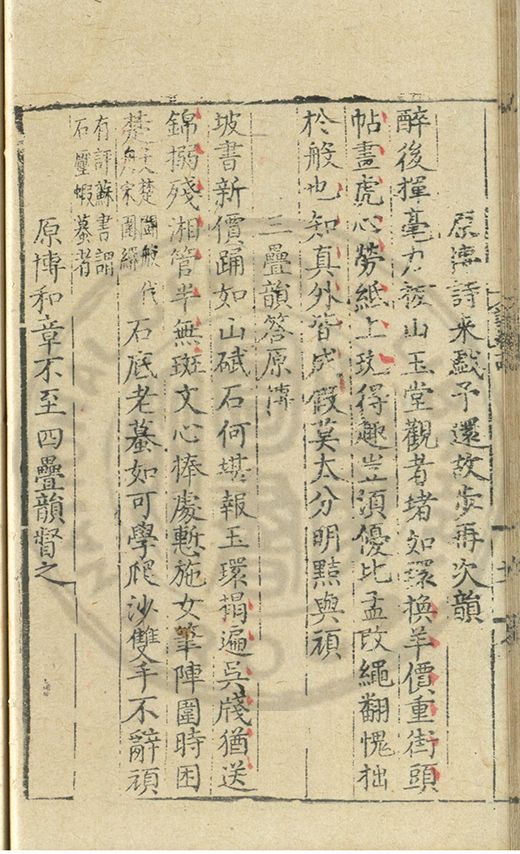 原博詩来戯予還故步再次韻
醉後揮毫力拔山玉堂觀者堵如環換羊價重街頭
帖畫虎心勞紙上斑得趣豈須優比孟改繩翻愧拙
於般也知真外皆成假莫太分明黠與頑
三疊韻答原博
坡書新價踊如山碔石何堪報玉環搨遍吳牋猶送
錦搦殘湘管半無斑文心捧處慙施女筆陣圍時困
楚般宋圍繹
石底老蟇如可學爬沙雙手不辭頑
有評蘇書謂
石壓蝦蟇者
原博和章不至四疊韻督之